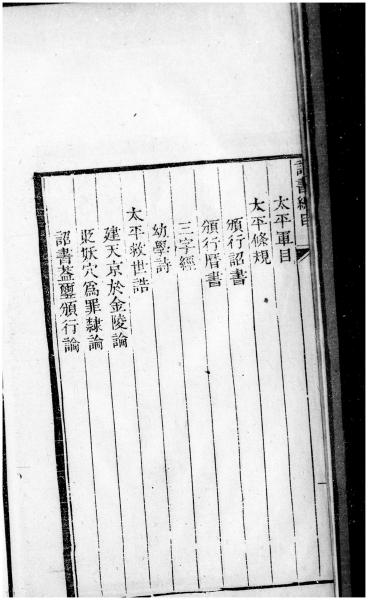 詔書總目
太平軍目
太平條規
頒行詔書
頒行厯書
三字經
幼學詩
太平救世誥
建天京於金陵論
貶妖穴爲罪隸論
詔書葢璽頒行論